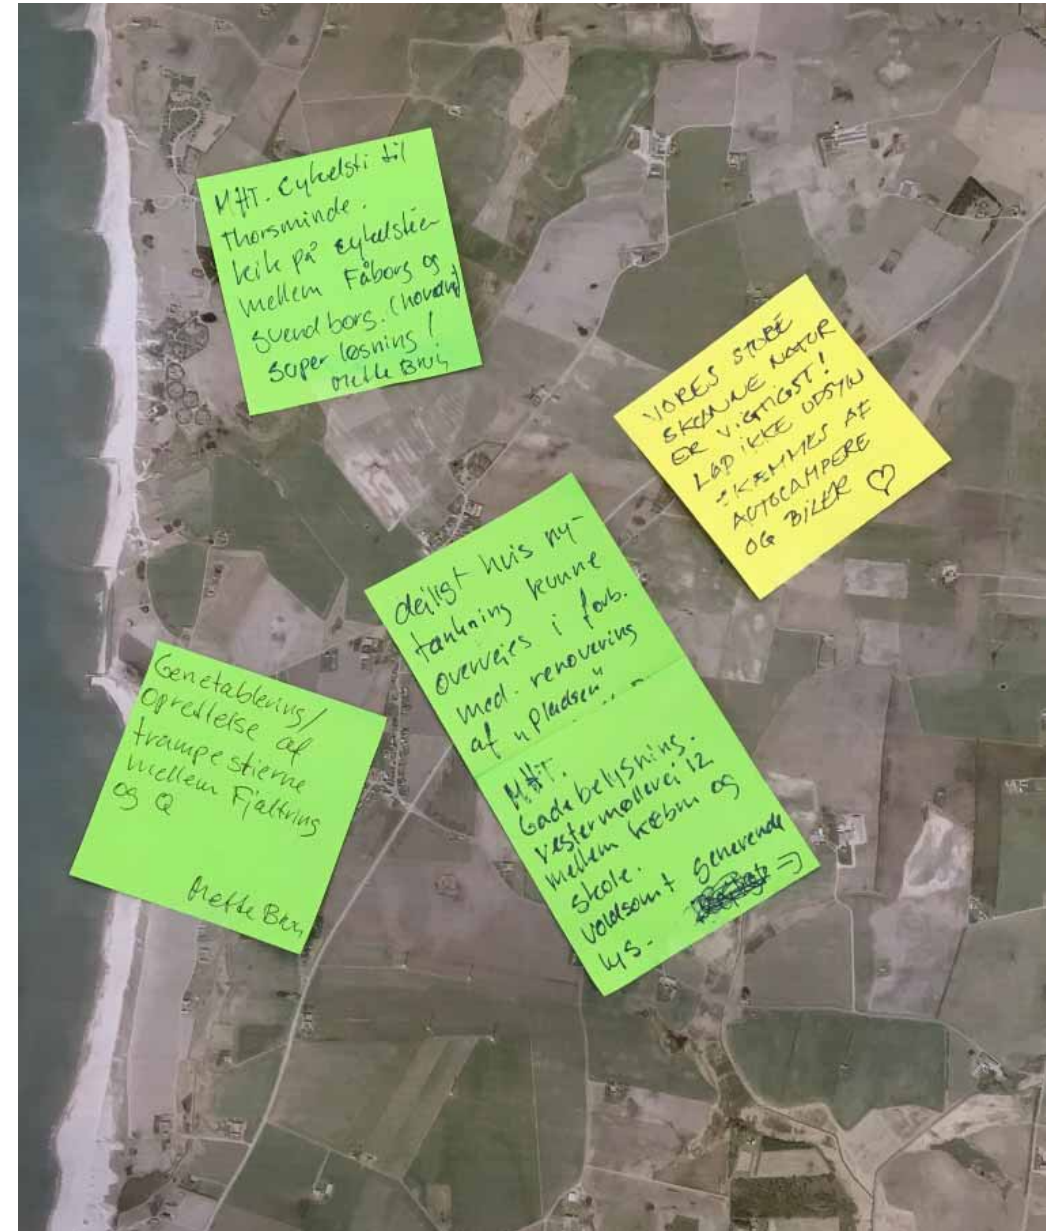 MHT. Cykelsti til
Thorsminde.
kik på cykelstien
mellem Fåborg og
svendborg.
super løsning!
Mette Bruu
VORES STORE
SKØNNE NATUR
ER VIGTIGST!
LAD IKKE UDSYN
SKÆMMES AF
AUTOCAMPERE
OG BILER ♡
dejligt hvis ny-
tænkning kunne
overvejes i forb.
med. renovering
af "pladsen"
MHT.
Gadebelysning.
vestermøllevej 12
mellem købm og
skole.
voldsomt generende
lys.
Genetablering/
Oprettelse af
trampestierne
mellem Fjaltring
og Q
Mette Bruu